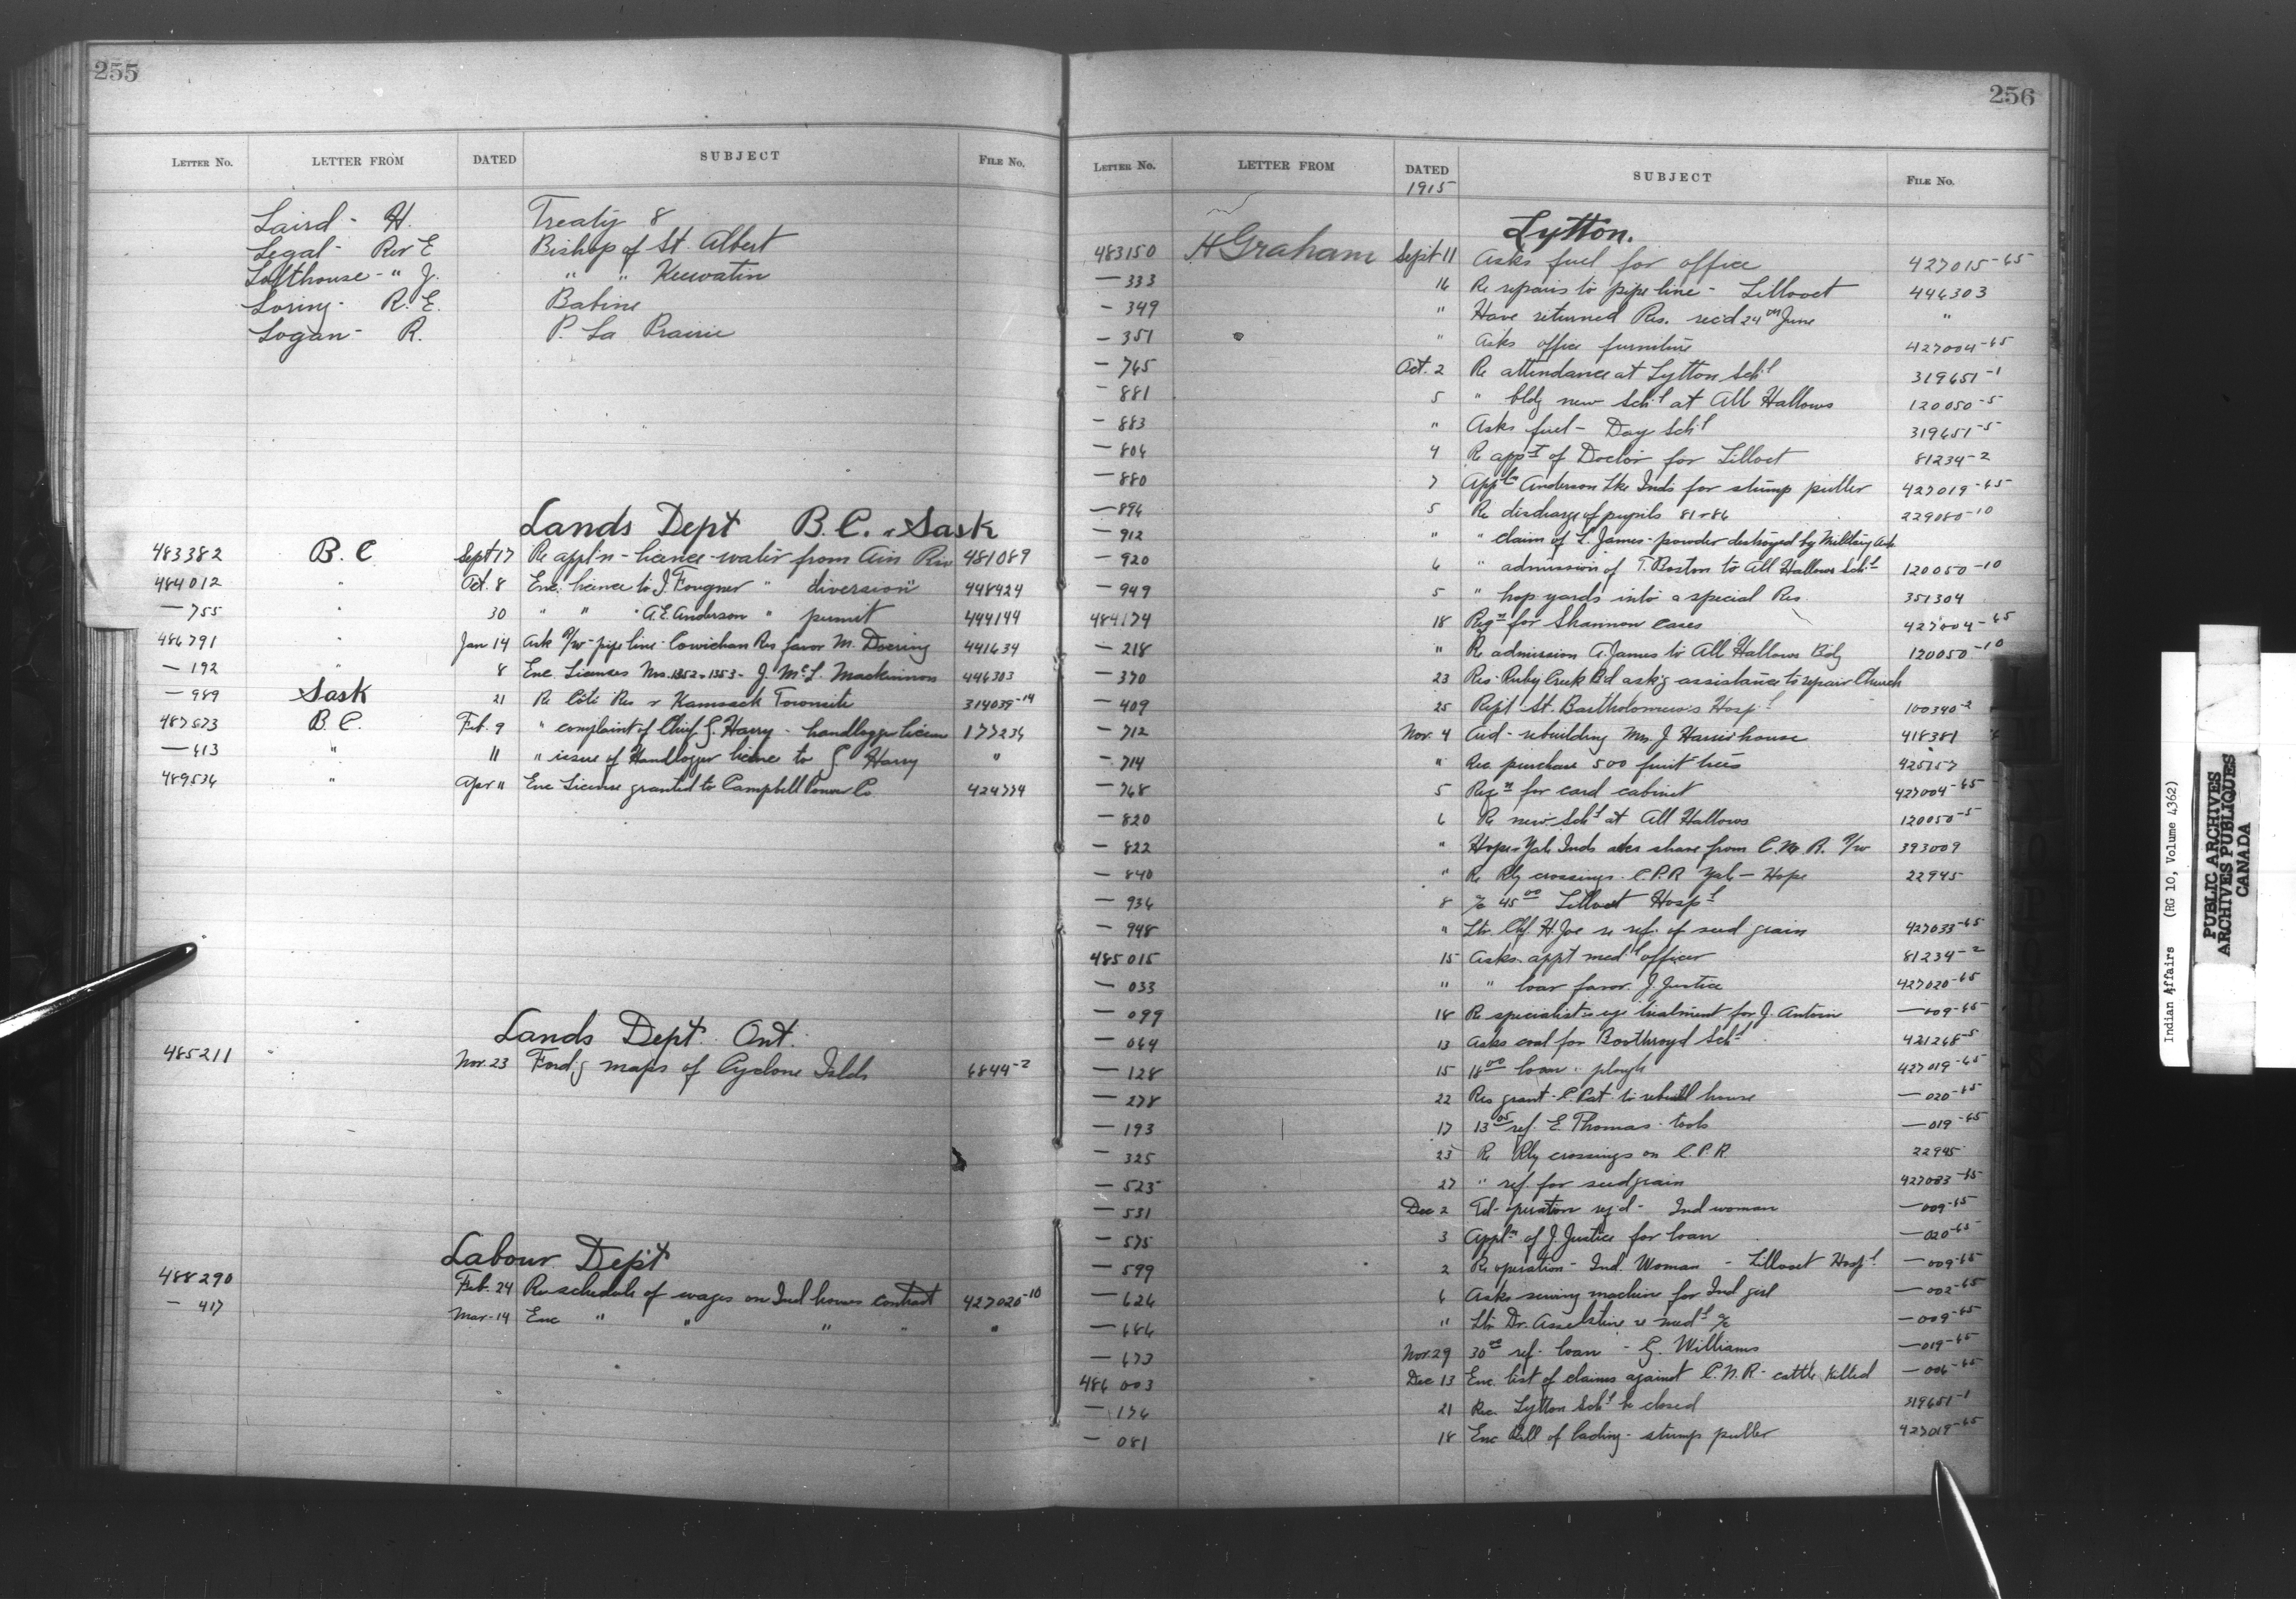 255
LETTER NO. LETTER FROM DATED SUBJECT FILE NO.
Laird - H. Treaty 8
Legal - Rev E Bishop of St. Albert
Lofthouse - " J. " " Keewatin
Loring - R. E. Babine
Logan - R. P. La Prairie
Lands Dept B.C. & Sask
483382 B.C Sept 17 Re appl'n - licence - water from Ain Riv 481089
484012 " Oct. 8 Enc. licence to J. Fougner " diversion" 448424
— 755 " 30 " " " A.E. Anderson " permit 444144
486791 " Jan 14 Ask R/W - pipe line - Cowichan Res favor M. Doering 441634
— 192 " 8 Enc. Licenses Nos. 1352 - 1353 - J. McL. Mackinnon 446303
— 989 Sask 21 Re Côté Res & Kamsack Townsite 314039-14
487573 B.C. Feb. 9 " complaint of Chief G. Harry - handlogger licence 177236
— 613 " 11 " issue of Handlogger licence to G Harry "
489536 " Apr 11 Enc License granted to Campbell Power Co 424774
Lands Dept. Ont.
485211 " Nov. 23 Ford'g maps of Cyclone Islds 6844-2
Labour Dep't
488290 Feb. 24 Re schedule of wages on Ind houses contract 427020-10
— 417 Mar. 14 Enc " " " " "
256
LETTER NO. LETTER FROM DATED SUBJECT FILE NO.
1915
Lytton.
483150 H Graham Sept 11 Asks fuel for office 427015-65
— 333 16 Re repairs to pipe line - Lillooet 446303
— 349 " Have returned Res. rec'd 24th June "
— 351 " Asks office furniture 427004-65
— 765 Oct. 2 Re attendance at Lytton Sch'l 319651-1
— 881 5 " bldg new Sch'l at All Hallows 120050-5
— 883 " Asks fuel - Day Sch'l 319651-5
— 806 4 Re app't of Doctor for Lilloet 81234-2
— 880 7 Appl'n Anderson Lke Inds for stump puller 427019-65
— 896 5 Re discharge of pupils 81 & 86 229080-10
— 912 " " claim of L. James - powder destroyed by Military Auth
— 920 6 " admission of T. Boston to All Hallows Sch'l 120050-10
— 949 5 " hop yards into a special Res. 351304
484174 18 Reqn for Shannon cases 427004-65
— 218 " Re admission A. James to All Hallows Bdg 120050-10
— 370 23 Res. Ruby Creek Bd ask'g assistance to repair Church
— 409 25 Rep't St. Bartholomew's Hosp'l 100340-2
— 712 Nov. 4 Aid - rebuilding Mrs. J Harris' house 418381
— 714 " Rec purchase 500 fruit trees 425157
— 768 5 Reqn for card cabinet 427004-65
— 820 6 Re new Sch'l at All Hallows 120050-5
— 822 " Hope & Yale Inds asks share from C.N.R. R/W 393009
— 840 " Re Rly crossings. C.P.R Yale - Hope 22945
— 936 8 a/c 45 00 Lilloet Hosp'l
— 948 " Ltr. Chf. H. Joe re ref. of seed grain 427033-65
485015 15 Asks appt med'l officer 81234-2
— 033 " " loan favor J. Justice 427020-65
— 099 18 Re specialist's eye treatment for J. Antoine — 009-65
— 064 13 Asks coal for Boothroyd Sch'l 421268-5
— 128 15 18 00 loan - plough 427019-65
— 278 22 Res grant - C. Pat - to rebuild house — 020-65
— 193 17 13 05 ref. E. Thomas - tools — 019-65
— 325 23 Re Rly crossings on C.P.R. 22945
— 523 27 " ref. for seed grain 427033-65
— 531 Dec 2 Td - operation req'd - Ind woman — 009-65
— 575 3 Appl'n of J. Justice for loan — 020-65
— 599 2 Re operation - Ind. Woman - Lillooet Hosp'l — 009-65
— 626 6 Asks sewing machine for Ind girl — 002-65
— 686 " Ltr Dr. Asselstine re med'l a/c — 009-65
— 673 Nov. 29 30 00 ref. loan - G. Williams — 019-65
486003 Dec 13 Enc. list of claims against C.N.R - cattle killed — 006-65
— 176 21 Rec. Lytton Sch'l be closed 319651-1
— 081 18 Enc Bill of lading - stump puller 427019-65
Indian Affairs (RG 10, Volume 4362)
PUBLIC ARCHIVES
ARCHIVES PUBLIQUES
CANADA